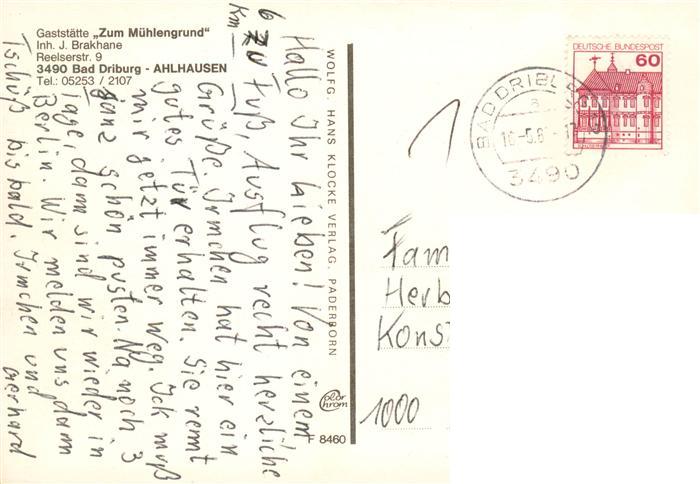 Gaststätte „Zum Mühlengrund"
Inh. J. Brakhane
Reelserstr. 9
3490 Bad Driburg - AHLHAUSEN
Tel.: 05253 / 2107
Hallo Ihr Lieben! Von einem
6 km zu Fuß Ausflug recht herzliche
Grüße. Irmchen hat hier ein
gutes Tür erhalten. Sie rennt
mir jetzt immer weg. Ick muß
ganz schön pusten. Na noch 3
Tage, dann sind wir wieder in
Berlin. Wir melden uns dann
Tschüß bis bald. Irmchen und
Gerhard
WOLFG. HANS KLOCKE VERLAG, PADERBORN
Color
chrom
F 8460
DEUTSCHE BUNDESPOST
60
BAD DRIBURG
a
3490
Fam
Herb
Konst
1000